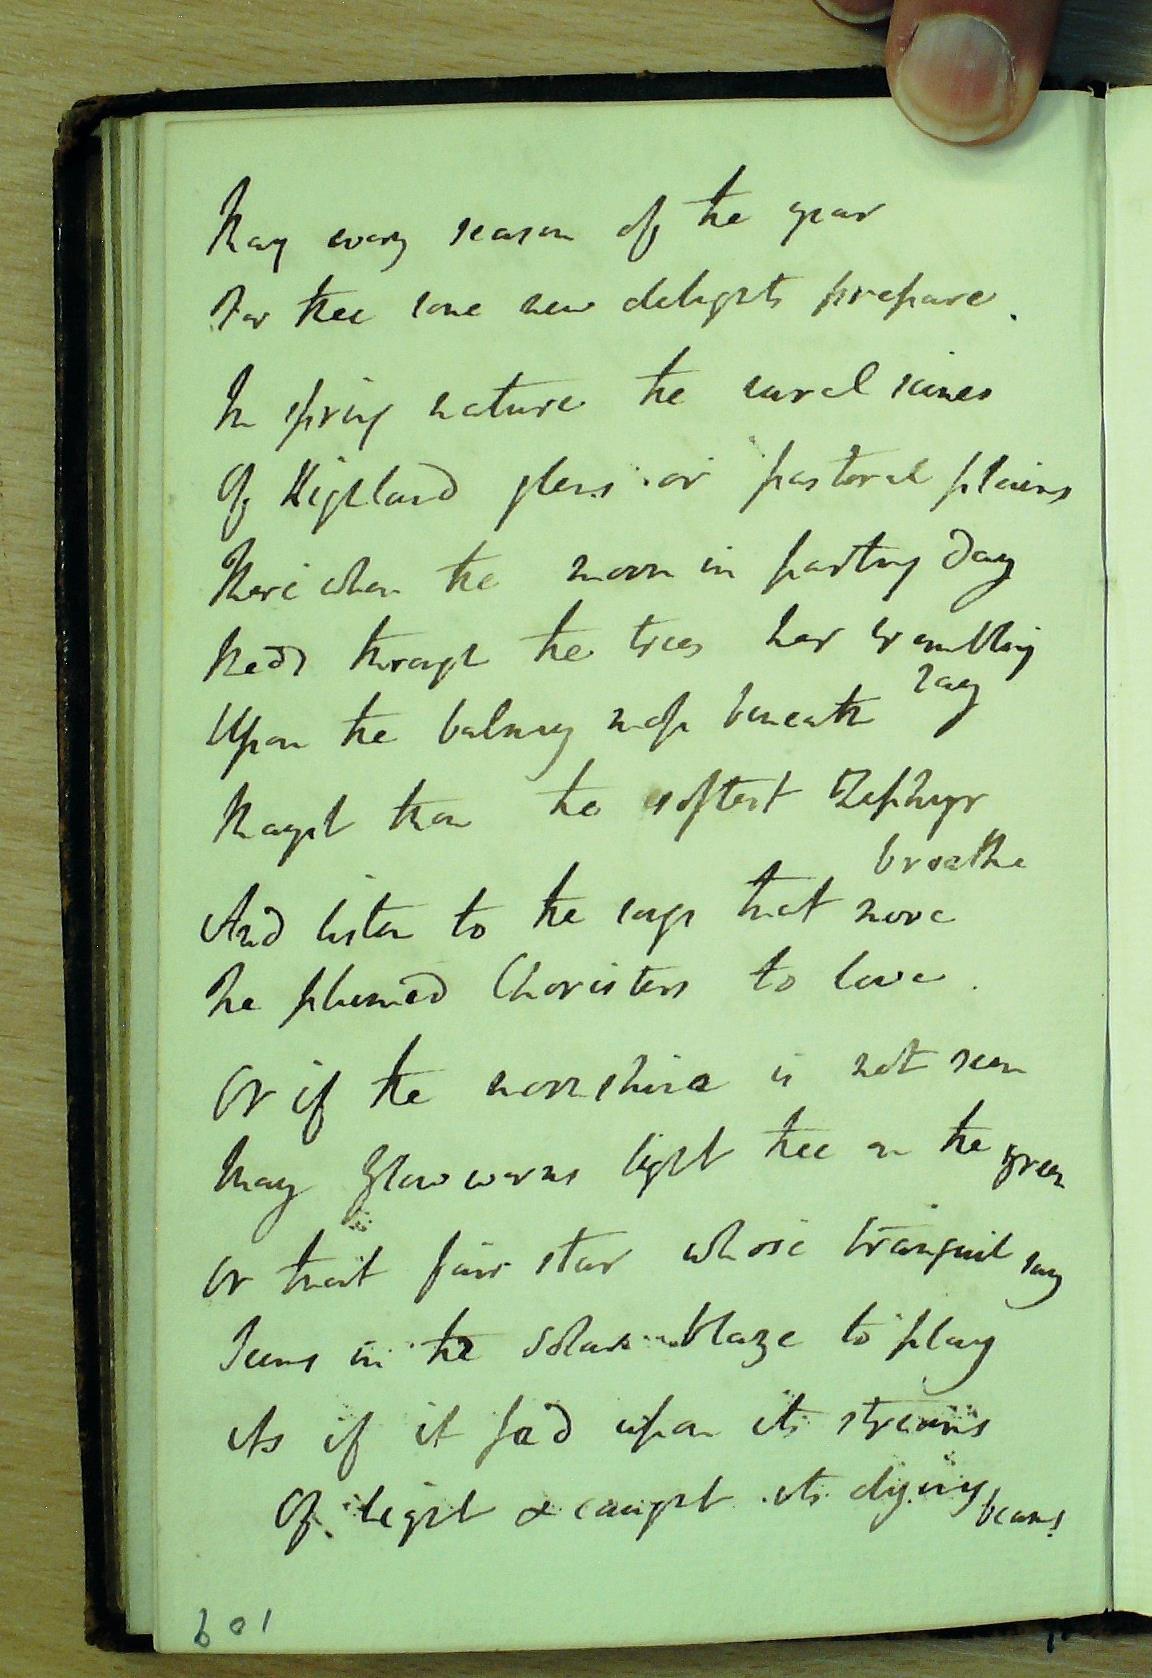 May every season of the year
For thee some new delights prepare.
In spring mature the rural scenes
Of Highland glens or pastoral plains
There when the moon in parting day
Sheds through the trees her trembling
ray
Upon the balmy beneath
Mayst thou the softest Zephyr
breathe
And listen to the songs that move
The plumed Choristers to love.
Or if the moonshine is not seen
May Glow worms light thee on the green
Or that fair star whose tranquil ray
Seems in the Solar blaze to play
As if it fed upon its streams
Of light & caught its dying beams
601